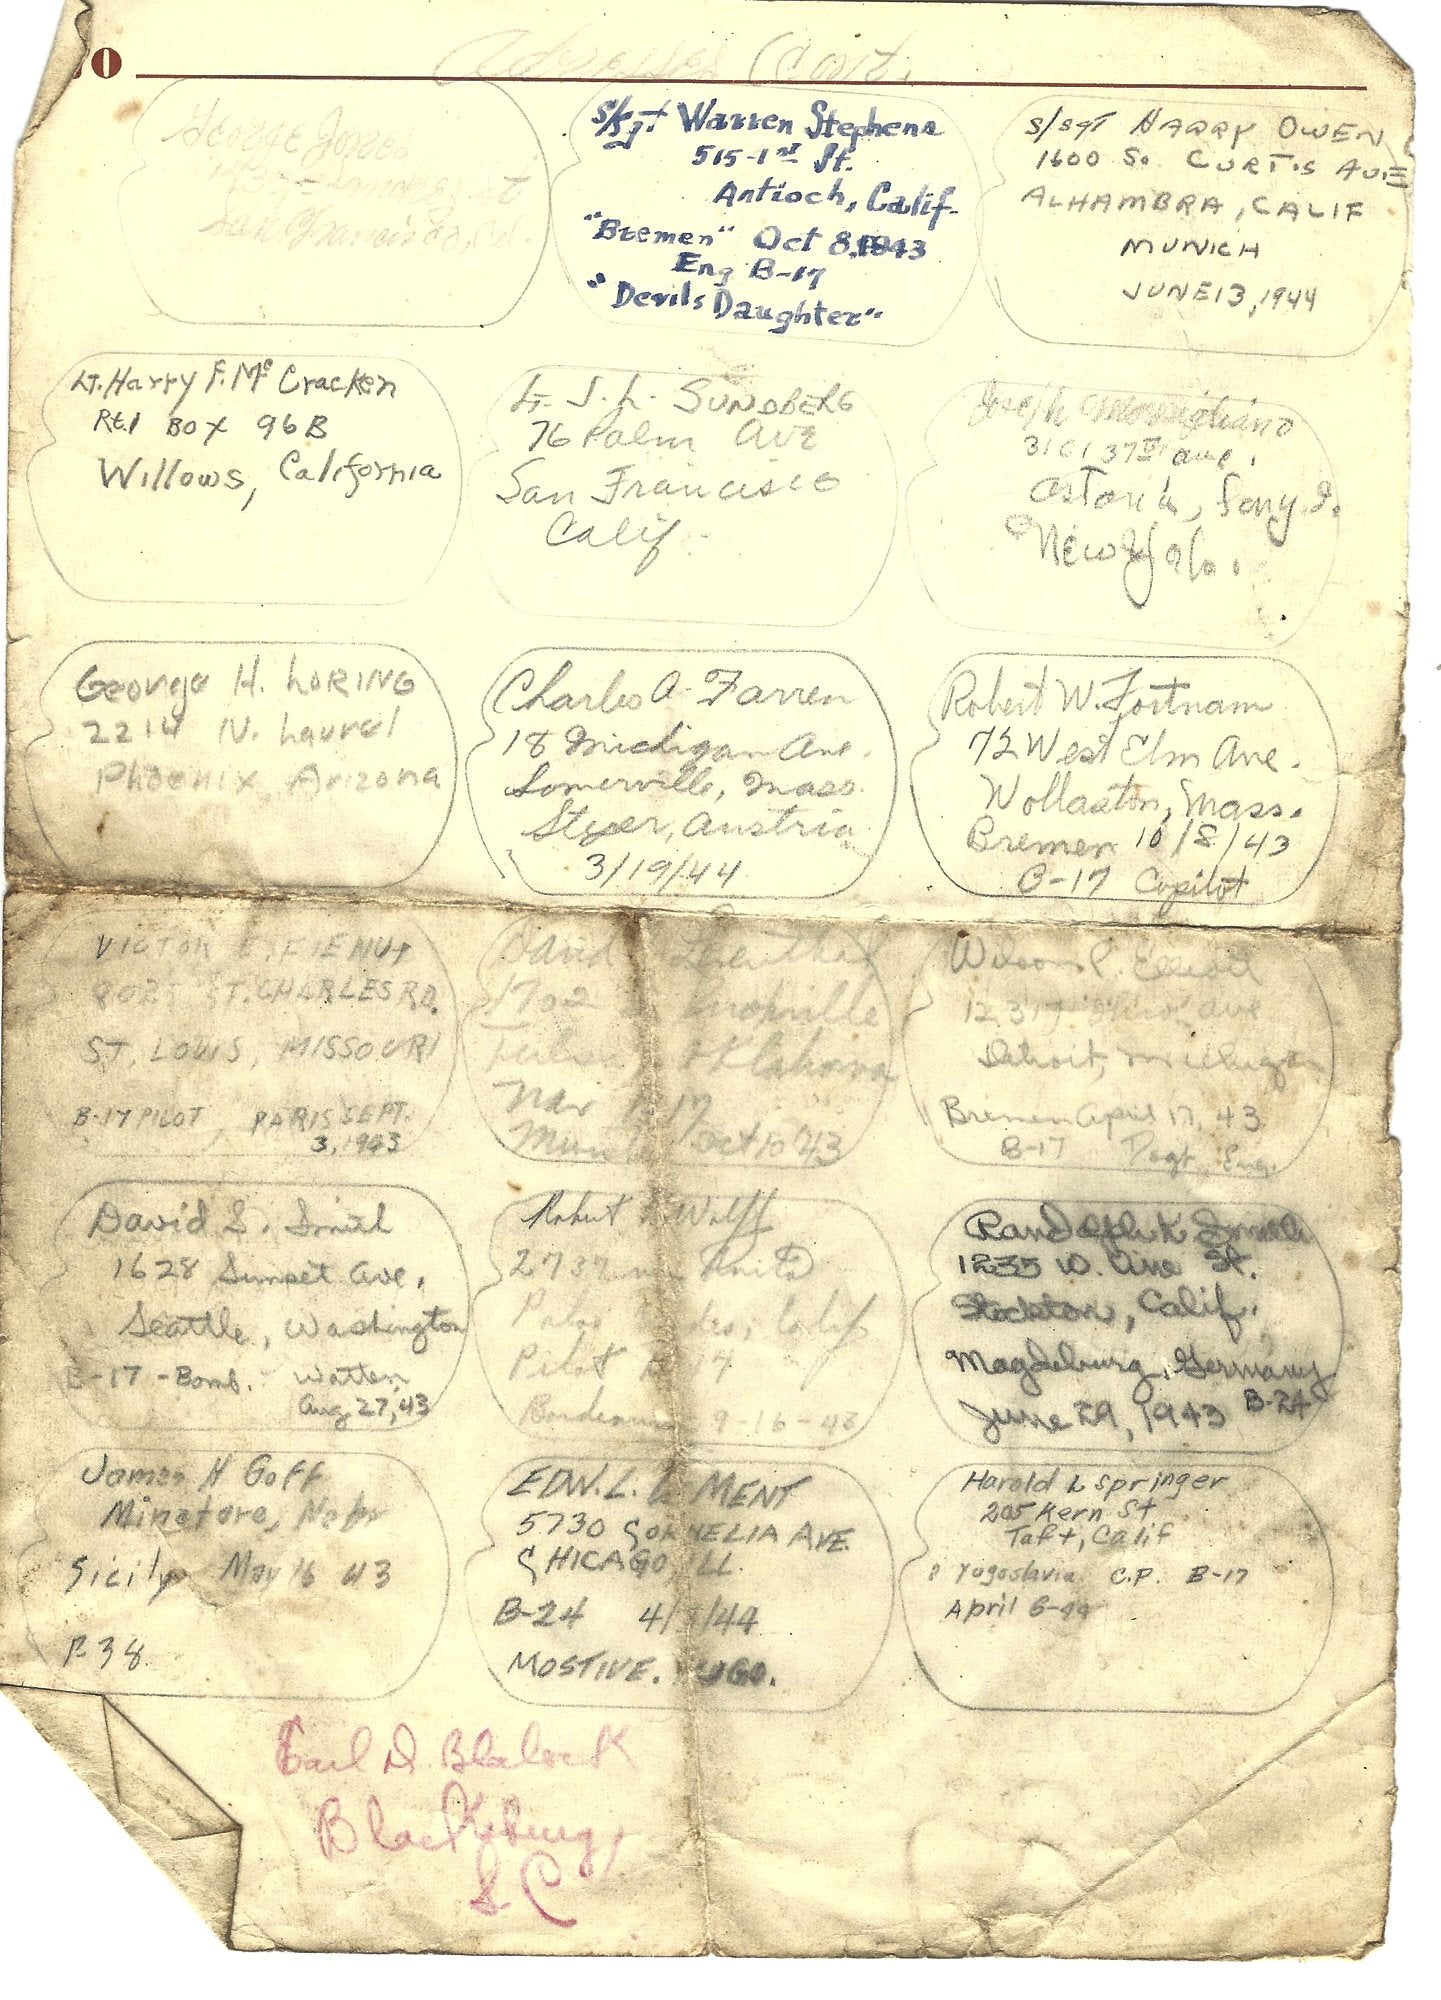 0
Addresses Cont.
George Jones
San Francisco, Cal.
S/Sgt Warren Stephens
515-1st St.
Antioch, Calif.
"Bremen" Oct 8, 1943
Eng B-17
"Devils Daughter"
S/SGT HARRY OWEN
1600 So. CURTIS AVE
ALHAMBRA, CALIF
MUNICH
JUNE 13, 1944
Lt. Harry F. McCracken
Rt 1 Box 96B
Willows, California
Lt. J. L. SUNDBERG
76 Palm Ave
San Francisco
Calif.
Joseph
3101 37th ave.
Astoria, Long I.
New York.
George H. LORING
2214 N. Laurel
Phoenix, Arizona
Charles A. Farren
18 Michigan Ave.
Somerville, Mass.
Steyer, Austria
3/19/44
Robert W. Fortnam
72 West Elm Ave.
Wollaston, Mass.
Bremen 10/8/43
B-17 Copilot
VICTOR E. FIEMUT
8025 ST. CHARLES RD.
ST. LOUIS, MISSOURI
B-17 PILOT, PARIS SEPT.
3, 1943
David
1702
Oklahoma
Nav B-17
Oct 10 '43
Wilson P. Elliott
12317 Ave
Detroit, Michigan
Bremen April 17, 43
B-17 Eng.
David S. Smith
1628 Sunset Ave.
Seattle, Washington
B-17 - Bomb. Watten
Aug 27, 43
Robert Wolff
2737
Palos Calif
Pilot B-17
Bordeaux 9-16-43
Randolph K Smith
1235 W. Vine St.
Stockton, Calif.
Magdeburg, Germany
June 29, 1943 B-24
James H Goff
Minatare, Nebr
Sicily May 16 43
P-38
EDW. L. MENT
5730 CORNELIA AVE
CHICAGO, ILL.
B-24 4/ /44
MOSTIVE. YUGO.
Harold L Springer
205 Kern St
Taft, Calif
Yugoslavia C.P. B-17
April 6-44
Earl D. Blalock
Blacksburg,
S.C